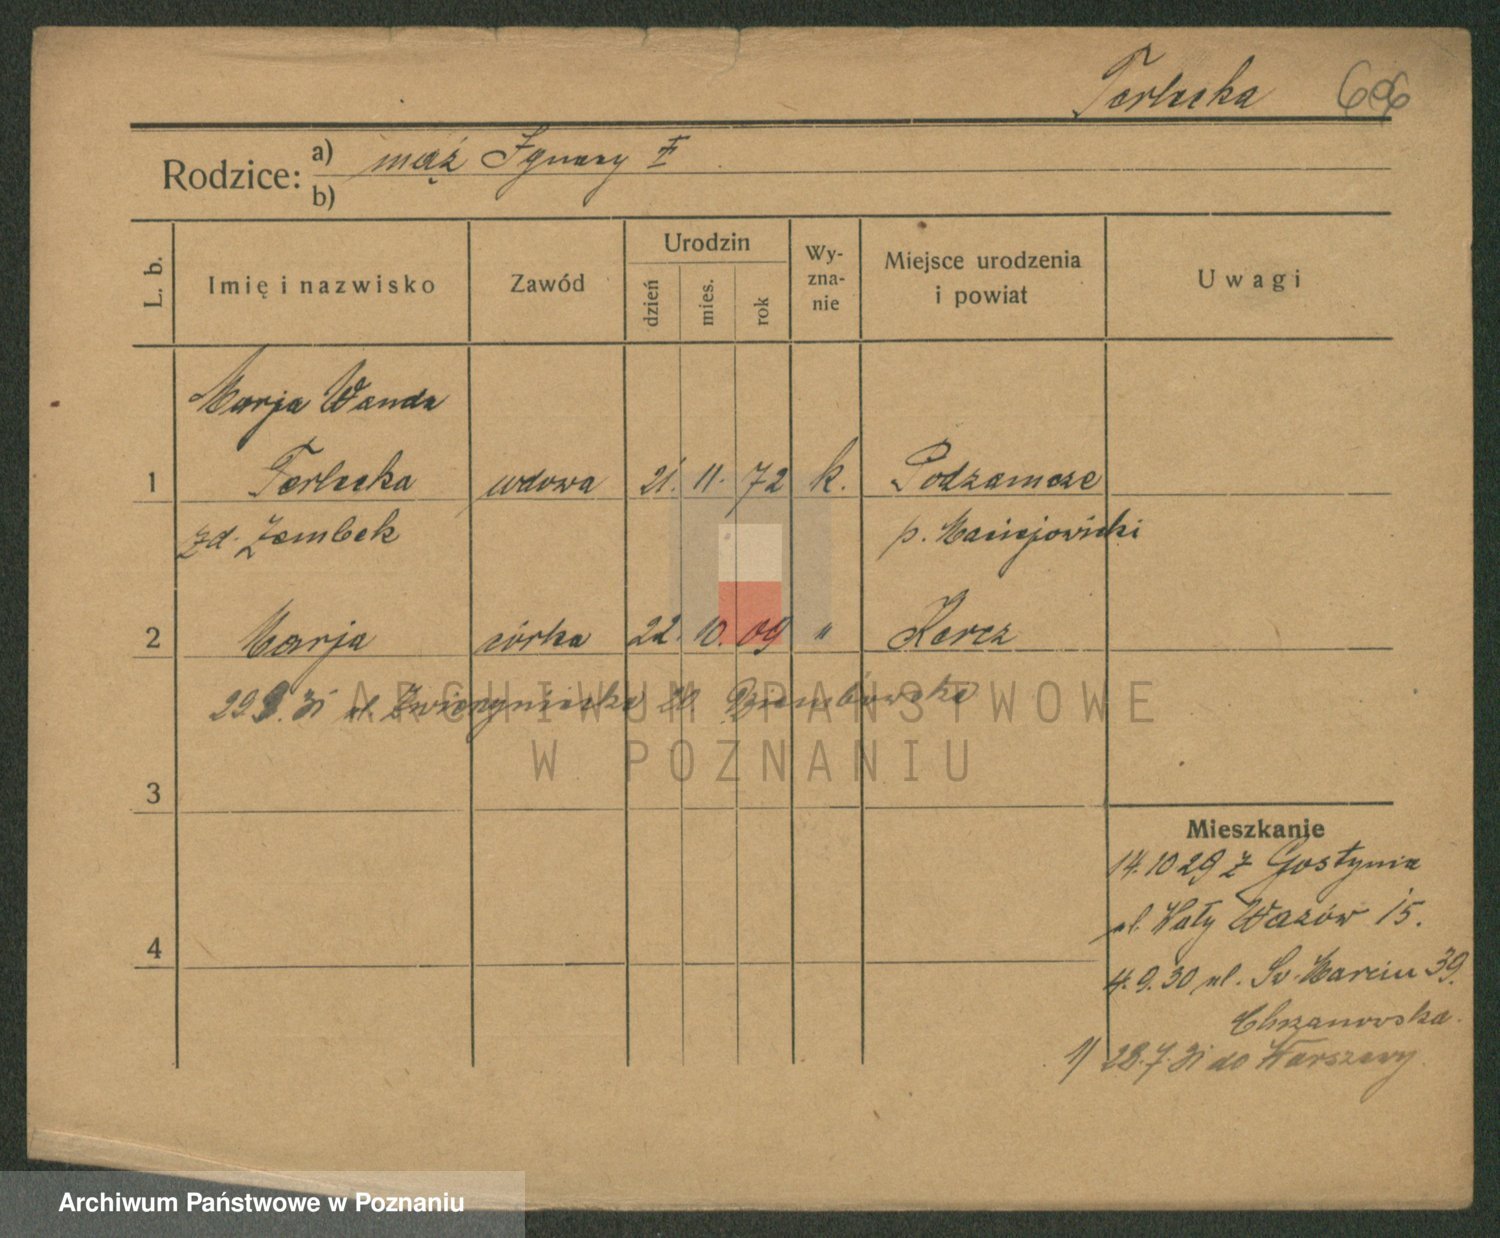 Terlecka 606
Rodzice: a) mąż Ignacy
b)
L. b. Imię i nazwisko Zawód Urodzin dzień mies. rok Wy-zna-nie Miejsce urodzenia i powiat Uwagi
Marja Wanda
1 Terlecka wdowa 21. 11. 72 k. Podzamcze
zd. Zembek p. Maciejowicki
2 Marja córka 22. 10. 09 " Kercz
29 9. 31 ul. Zwierzyniecka 20. Dziembowska
3
Mieszkanie
14.10 29 z Gostynia
ul. Wały Wazów 15.
4
4.9.30 ul. Św. Marcin 39.
Chrzanowska.
1) 28.7.31 do Warszawy
ARCHIWUM PAŃSTWOWE
W POZNANIU
Archiwum Państwowe w Poznaniu